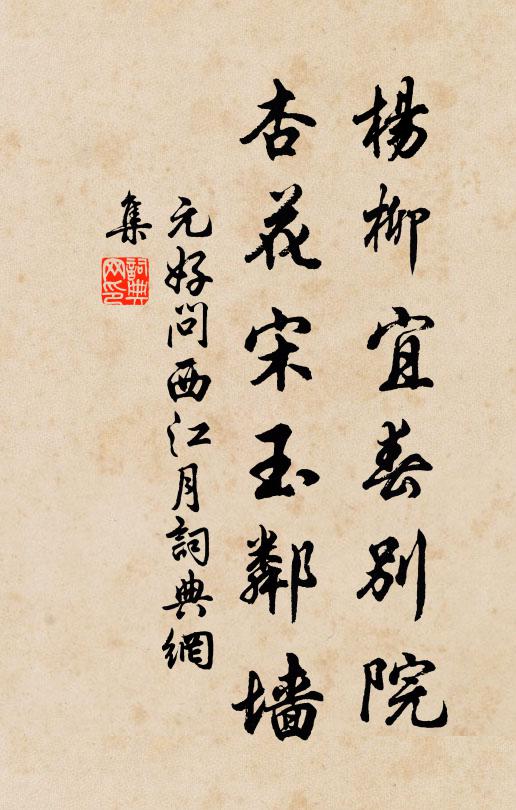 楊柳宜春別院
杏花宋玉鄰墻
元好问西江月詞典網
集
詞典網印